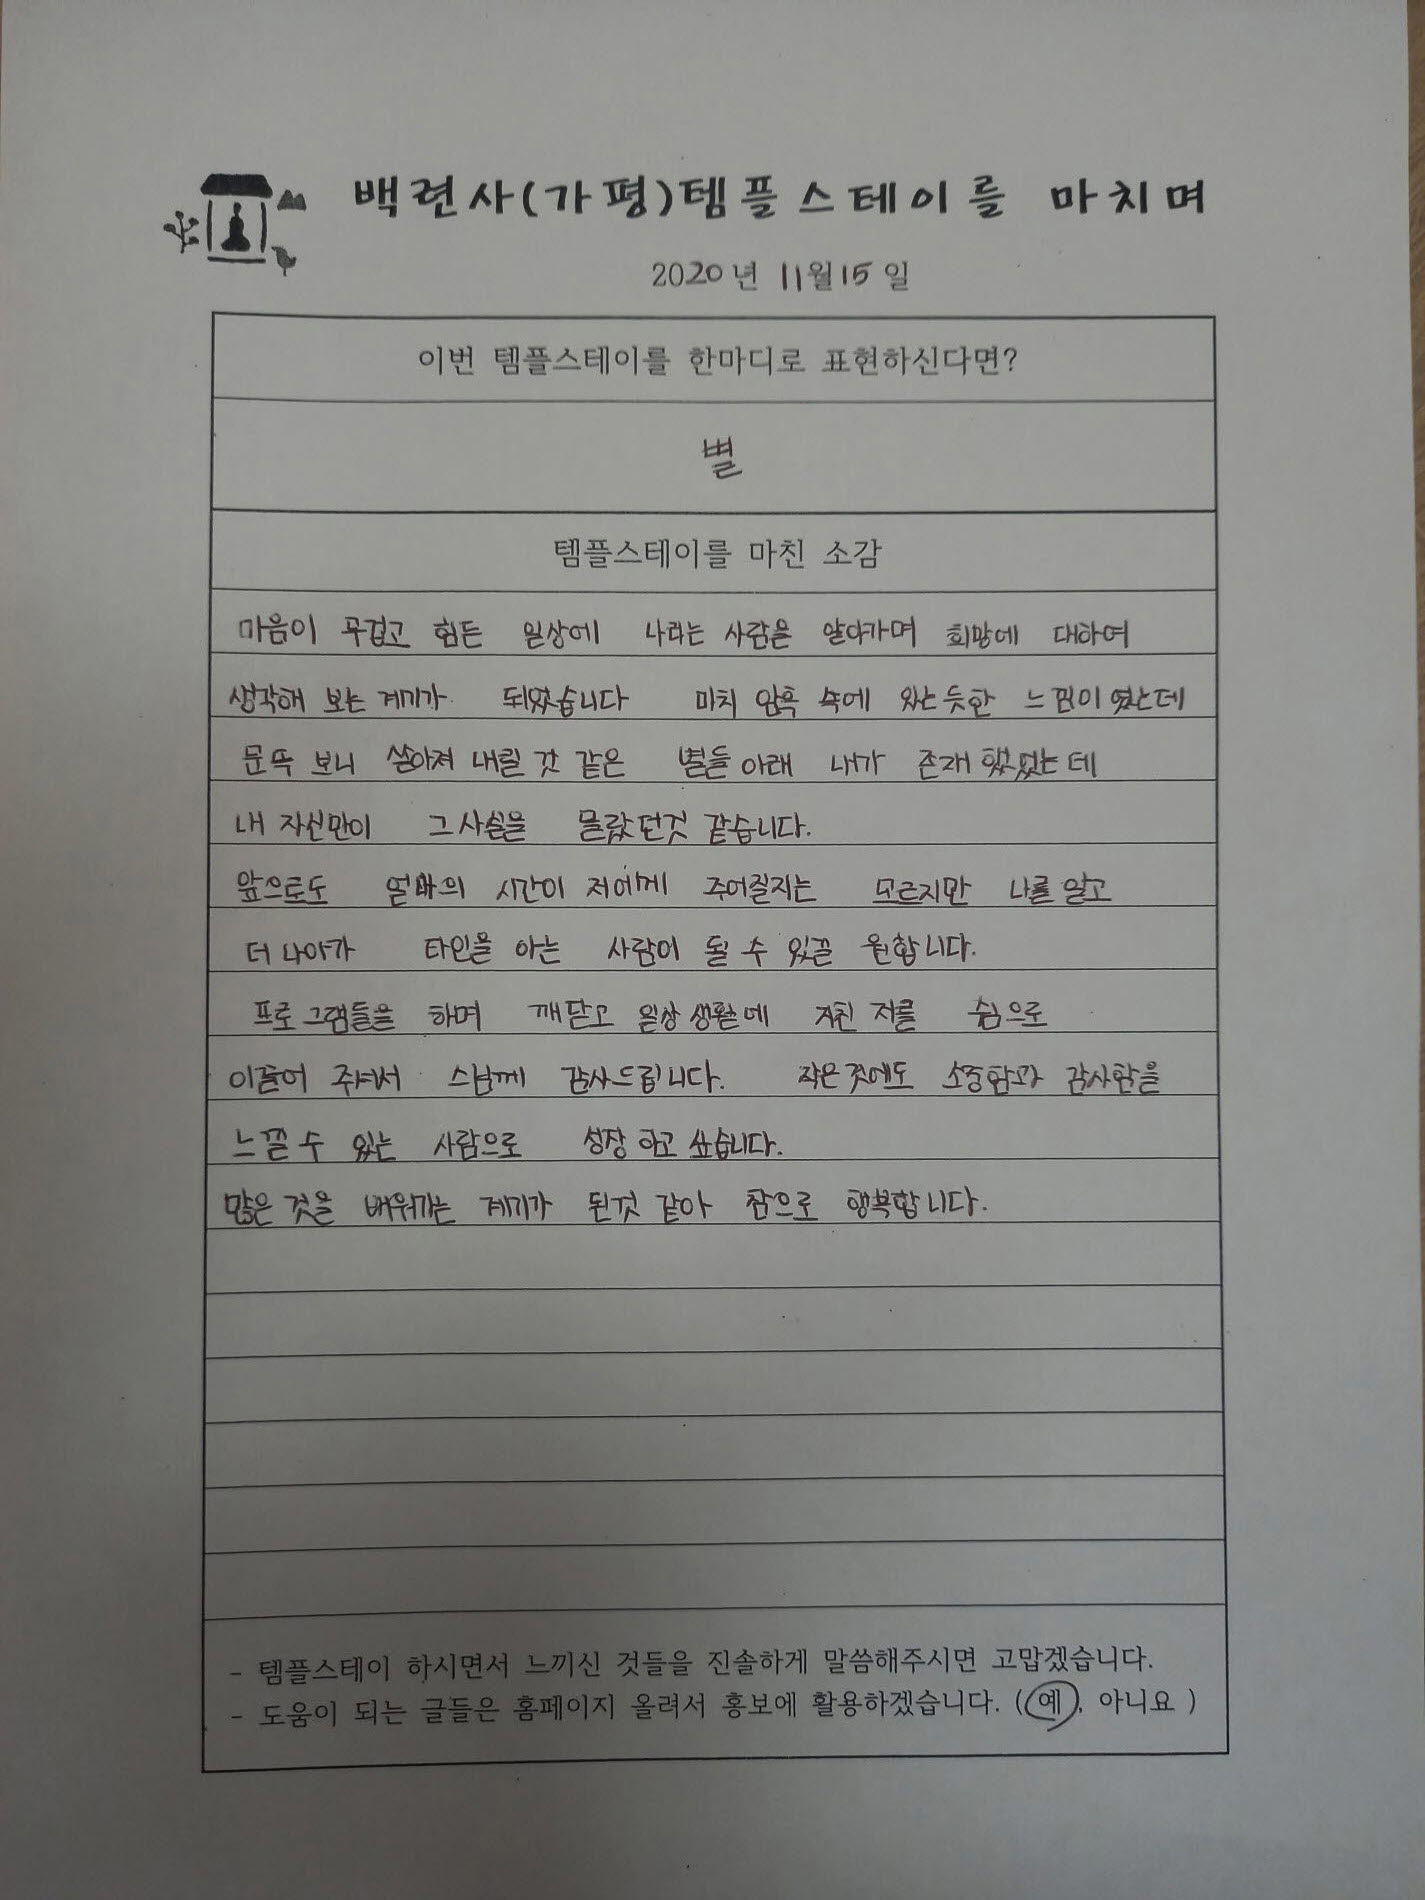 백련사(가평)템플스테이를 마치며
2020년 11월15일
이번 템플스테이를 한마디로 표현하신다면?
별
템플스테이를 마친 소감
마음이 무겁고 힘든 일상에 나라는 사람을 알아가며 희망에 대하여
생각해 보는 계기가 되었습니다 마치 암흑 속에 있는듯한 느낌이였는데
문뜩 보니 쏟아져 내릴 것 같은 별들 아래 내가 존재했었는데
내 자신만이 그 사실을 몰랐던것 같습니다.
앞으로도 얼마의 시간이 저에게 주어질지는 모르지만 나를 알고
더 나아가 타인을 아는 사람이 될 수 있길 원합니다.
프로그램들을 하며 깨닫고 일상생활에 지친 저를 쉼으로
이끌어 주셔서 스님께 감사드립니다. 작은것에도 소중함과 감사함을
느낄 수 있는 사람으로 성장하고 싶습니다.
많은 것을 배워가는 계기가 된것 같아 참으로 행복합니다.
- 템플스테이 하시면서 느끼신 것들을 진솔하게 말씀해주시면 고맙겠습니다.
- 도움이 되는 글들은 홈페이지 올려서 홍보에 활용하겠습니다. (예, 아니요 )